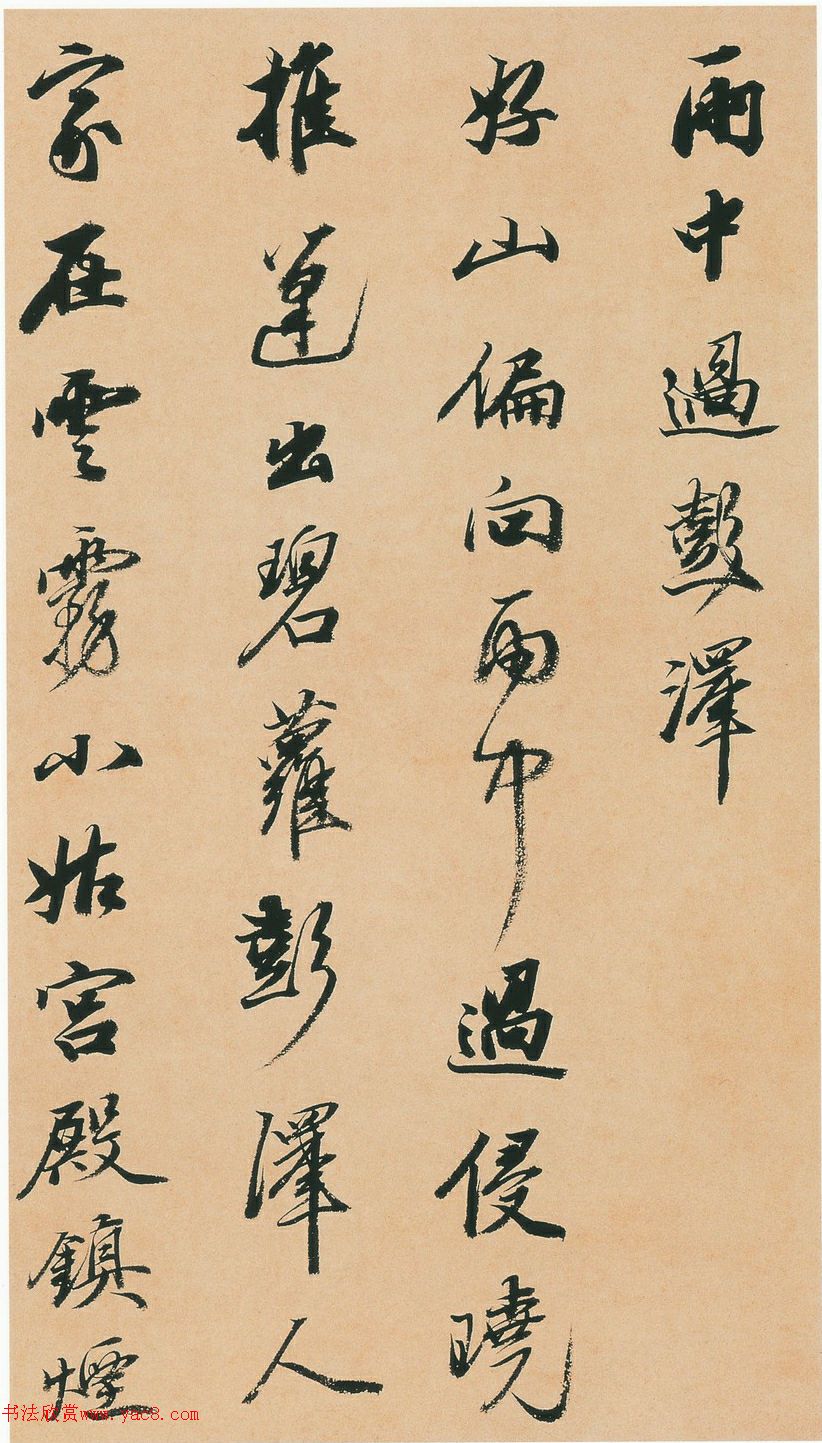 雨中過彭澤
好山偏向雨中過侵曉
推蓬出碧蘿彭澤人
家在雲霧小姑宮殿鎮煙
书法欣赏www.yac8.com